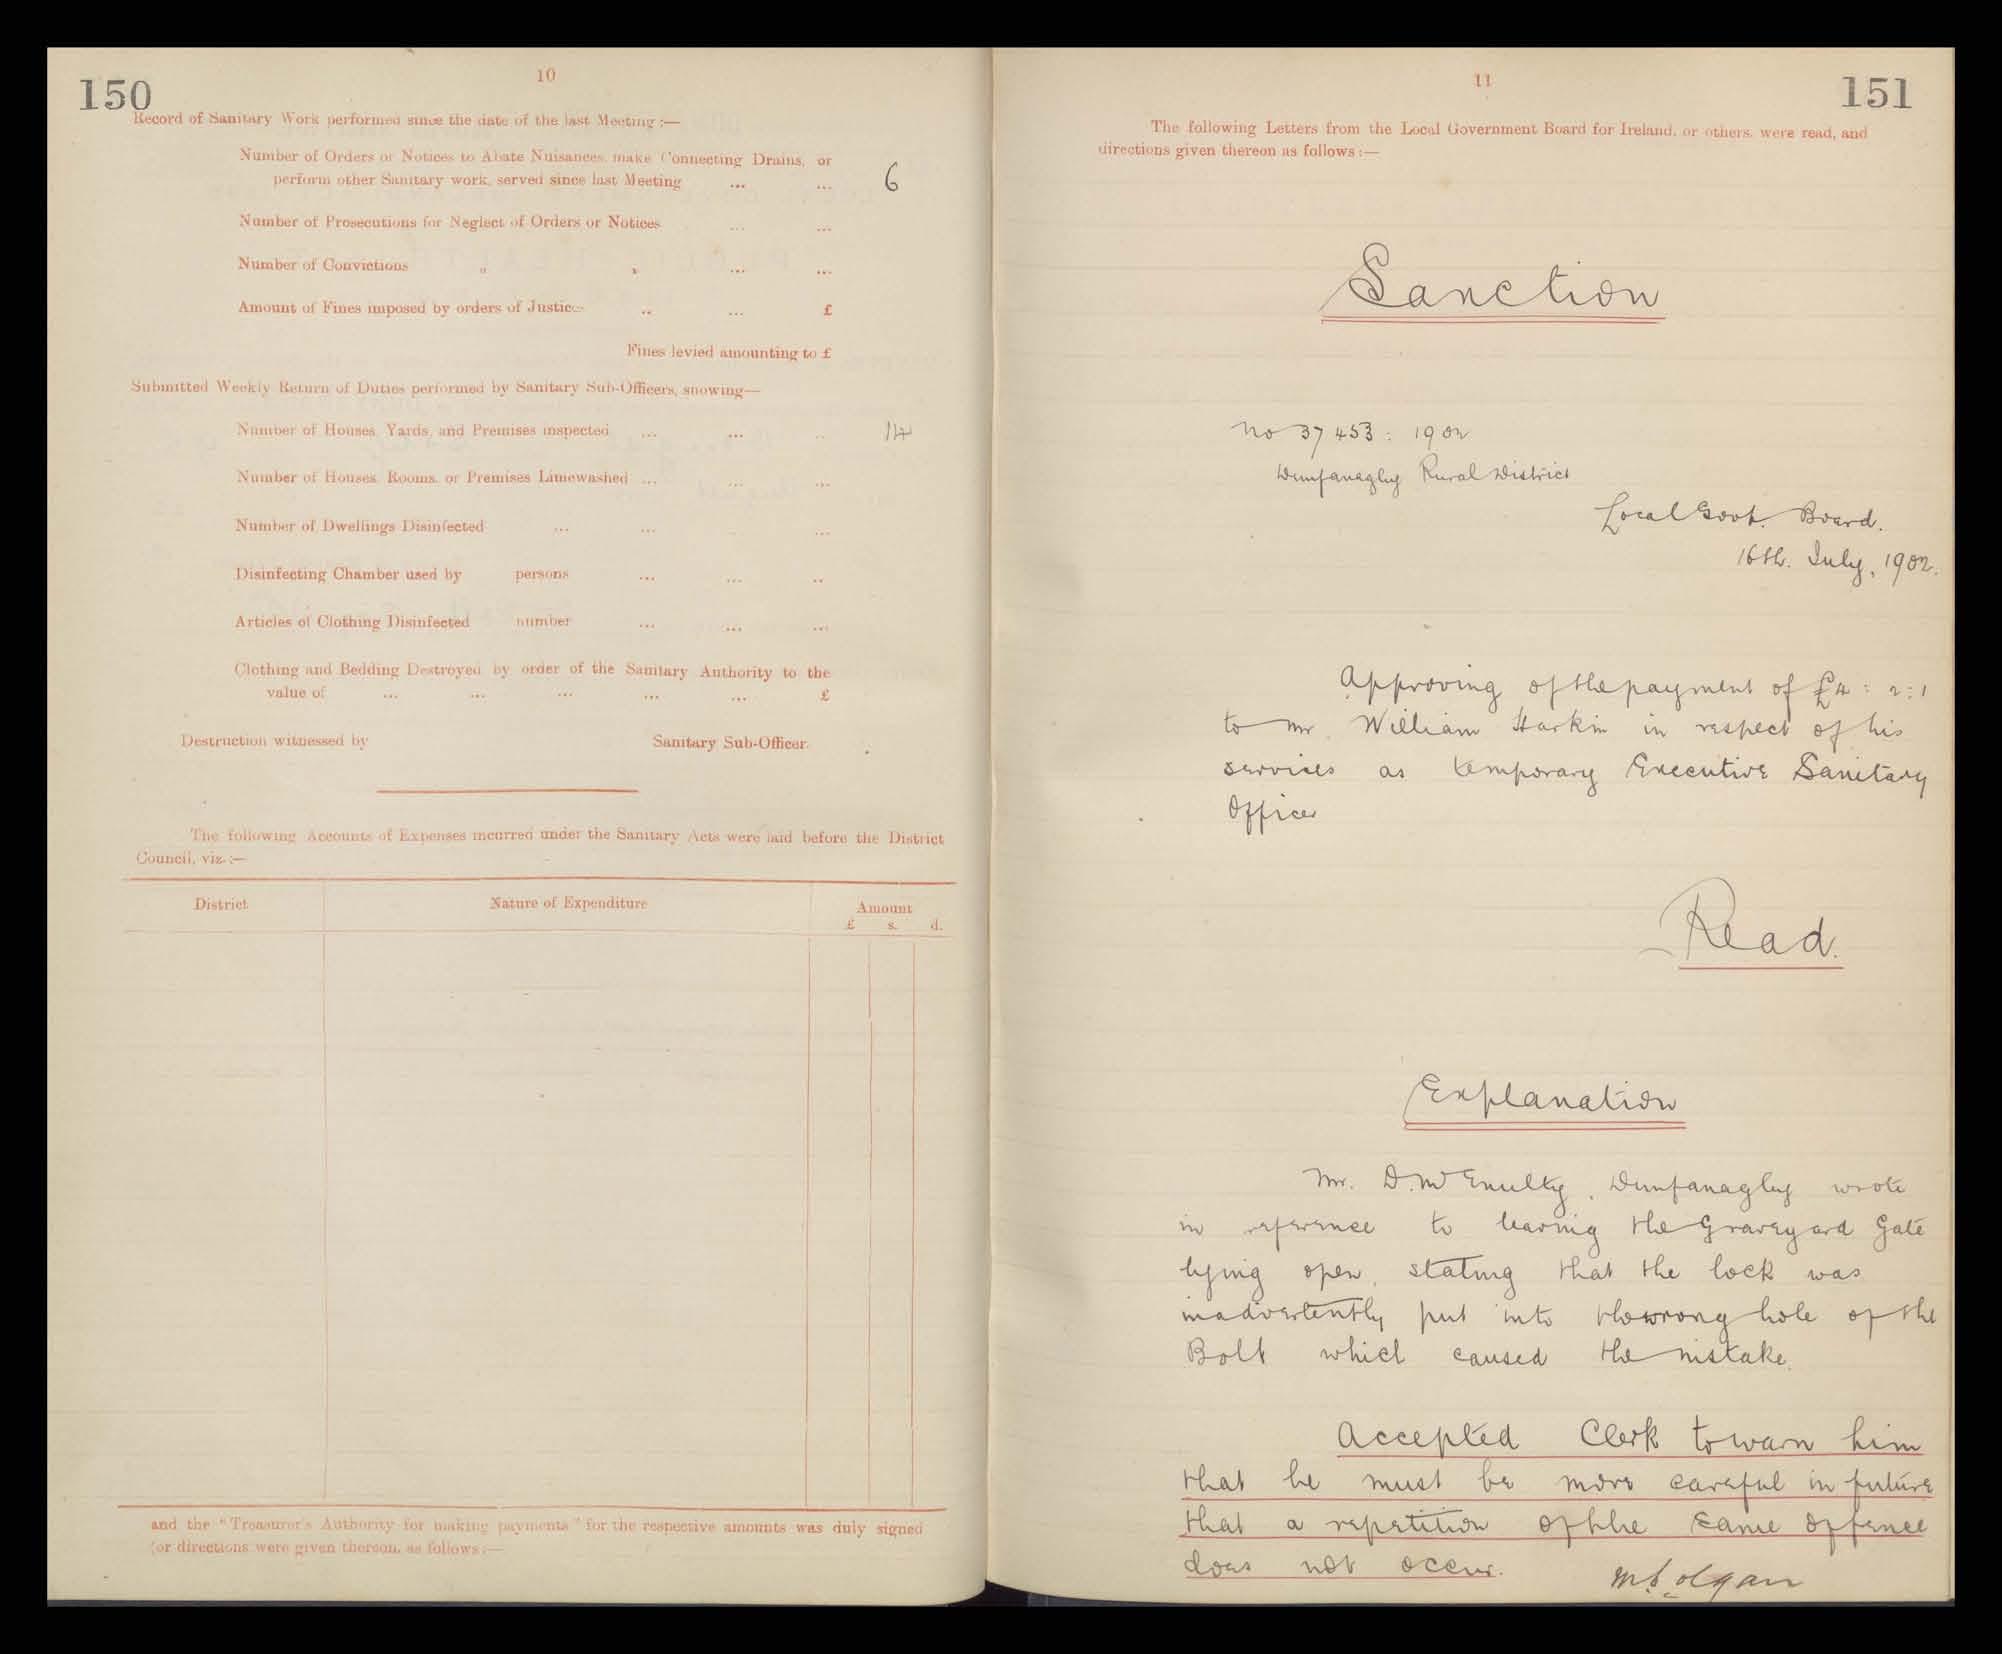 150
10
Record of Sanitary Work performed since the date of the last Meeting :—
Number of Orders or Notices to Abate Nuisances, make Connecting Drains, or
perform other Sanitary work, served since last Meeting ... ... 6
Number of Prosecutions for Neglect of Orders or Notices ... ...
Number of Convictions „ „ ... ...
Amount of Fines imposed by orders of Justices .. ... £
Fines levied amounting to £
Submitted Weekly Return of Duties performed by Sanitary Sub-Officers, showing—
Number of Houses, Yards, and Premises inspected ... ... .. 14
Number of Houses, Rooms, or Premises Limewashed ... ... ...
Number of Dwellings Disinfected ... ... ...
Disinfecting Chamber used by persons ... ... ..
Articles of Clothing Disinfected number ... ... ...
Clothing and Bedding Destroyed by order of the Sanitary Authority to the
value of ... ... ... ... ... £
Destruction witnessed by Sanitary Sub-Officer.
The following Accounts of Expenses incurred under the Sanitary Acts were laid before the District
Council, viz.:—
District Nature of Expenditure Amount
£ s. d.
and the "Treasurer's Authority for making payments" for the respective amounts was duly signed
(or directions were given thereon, as follows:—
11
151
The following Letters from the Local Government Board for Ireland, or others, were read, and
directions given thereon as follows :—
Sanction
No 37453 : 1902
Dunfanaghy Rural District
Local Govt. Board.
16th. July, 1902.
Approving of the payment of £4 : 2 : 1
to Mr. William Harkin in respect of his
services as temporary Executive Sanitary
Officer
Read.
Explanation
Mr. D. McEnulty, Dunfanaghy wrote
in reference to leaving the Graveyard Gate
lying open, stating that the lock was
inadvertently put into the wrong hole of the
Bolt which caused the mistake.
Accepted Clerk to warn him
that he must be more careful in future
that a repetition of the same offence
does not occur.
McColgan